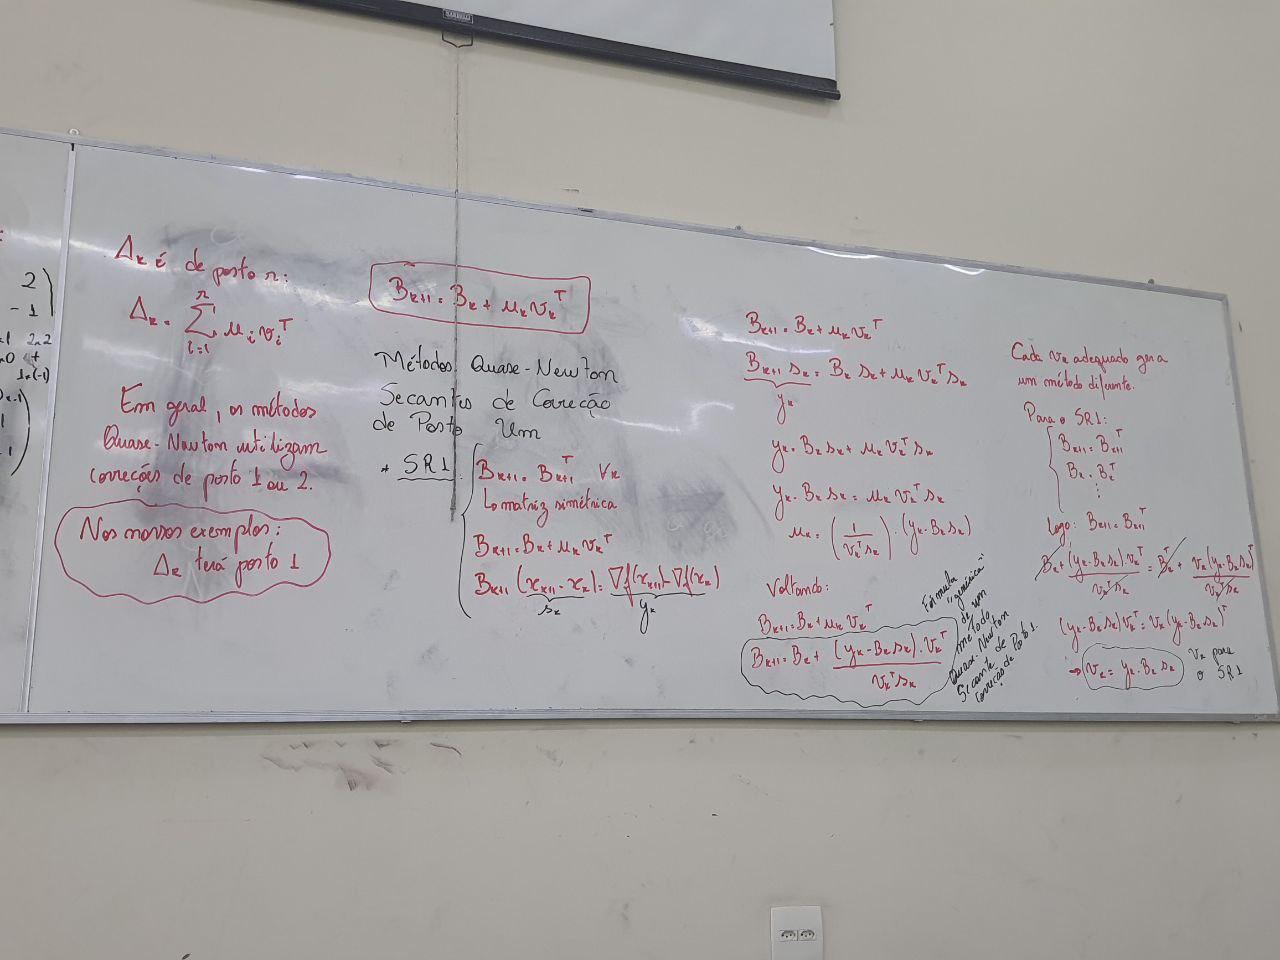 2
- 1
2x2
1x(-1)
Δₖ é de posto r:
Δₖ = Σ_{i=1}^{r} uᵢvᵢᵀ
Em geral, os métodos
Quase-Newton utilizam
correções de posto 1 ou 2.
Nos nossos exemplos:
Δₖ terá posto 1
Bₖ₊₁ = Bₖ + uₖvₖᵀ
Métodos Quase-Newton
Secantes de Correção
de Posto Um
* SR1:
Bₖ₊₁ = Bₖ₊₁ᵀ ∀ₖ
↳ matriz simétrica
Bₖ₊₁ = Bₖ + uₖvₖᵀ
Bₖ₊₁ (xₖ₊₁ - xₖ) = ∇f(xₖ₊₁) - ∇f(xₖ)
sₖ yₖ
Bₖ₊₁ = Bₖ + uₖvₖᵀ
Bₖ₊₁ sₖ = Bₖ sₖ + uₖ vₖᵀ sₖ
yₖ
yₖ = Bₖ sₖ + uₖ vₖᵀ sₖ
yₖ - Bₖ sₖ = uₖ vₖᵀ sₖ
uₖ = (1/(vₖᵀsₖ)) · (yₖ - Bₖsₖ)
Voltando:
Bₖ₊₁ = Bₖ + uₖvₖᵀ
Bₖ₊₁ = Bₖ + ((yₖ - Bₖsₖ) · vₖᵀ)/(vₖᵀsₖ)
Fórmula
"genérica"
de um
método
Quase-Newton
Secante de
correção de Posto 1.
Cada vₖ adequado gera
um método diferente.
Para o SR1:
Bₖ₊₁ = Bₖ₊₁ᵀ
Bₖ = Bₖᵀ
⋮
Logo: Bₖ₊₁ = Bₖ₊₁ᵀ
Bₖ + ((yₖ - Bₖsₖ)vₖᵀ)/(vₖᵀsₖ) = Bₖᵀ + (vₖ(yₖ - Bₖsₖ)ᵀ)/(vₖᵀsₖ)
(yₖ - Bₖsₖ)vₖᵀ = vₖ(yₖ - Bₖsₖ)ᵀ
→ vₖ = yₖ - Bₖ sₖ
vₖ para
o SR1